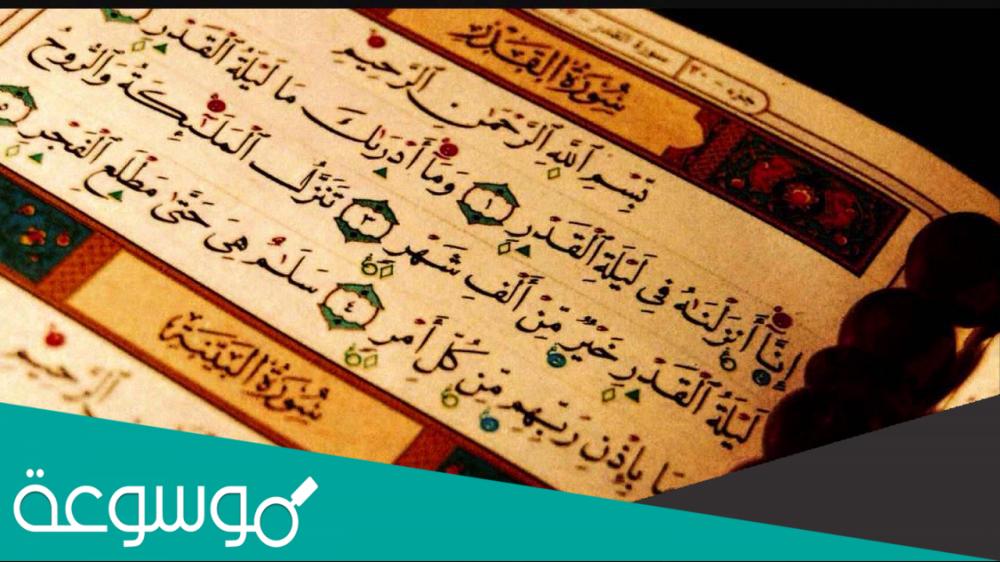 جزء ٣٠ سورة القدر
سُورَةُ القَدْرِ
بِسْمِ ٱللَّهِ ٱلرَّحْمَٰنِ ٱلرَّحِيمِ
إِنَّآ أَنزَلْنَٰهُ فِى لَيْلَةِ ٱلْقَدْرِ ١ وَمَآ أَدْرَىٰكَ مَا لَيْلَةُ ٱلْقَدْرِ
لَيْلَةُ ٱلْقَدْرِ خَيْرٌ مِّنْ أَلْفِ شَهْرٍ ٣ تَنَزَّلُ ٱلْمَلَٰٓئِكَةُ وَٱلرُّوحُ
بِإِذْنِ رَبِّهِم مِّن كُلِّ أَمْرٍ ٤ سَلَٰمٌ هِىَ حَتَّىٰ مَطْلَعِ ٱلْفَجْرِ ٥
سُورَةُ البَيِّنَةِ
ٱلرَّحِيمِ
موسوعة